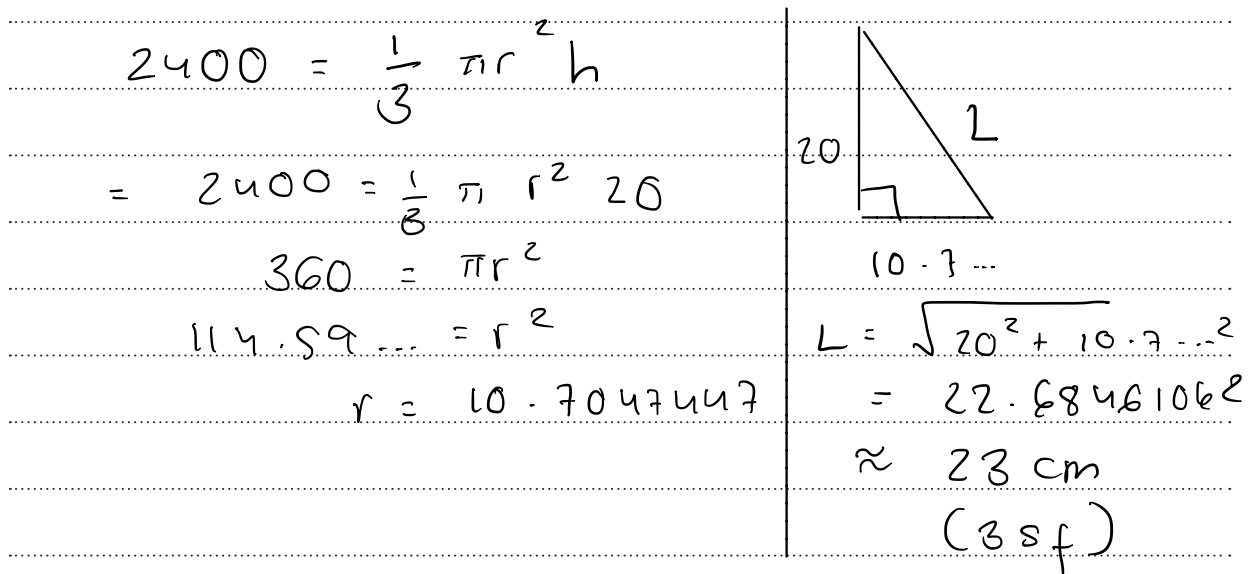 2400 = 1/3 πr² h
= 2400 = 1/3 π r² 20
360 = πr²
114.59... = r²
r = 10.7047447
20
L
10.7...
L = √(20² + 10.7...²)
= 22.68461062
≈ 23 cm
(3sf)